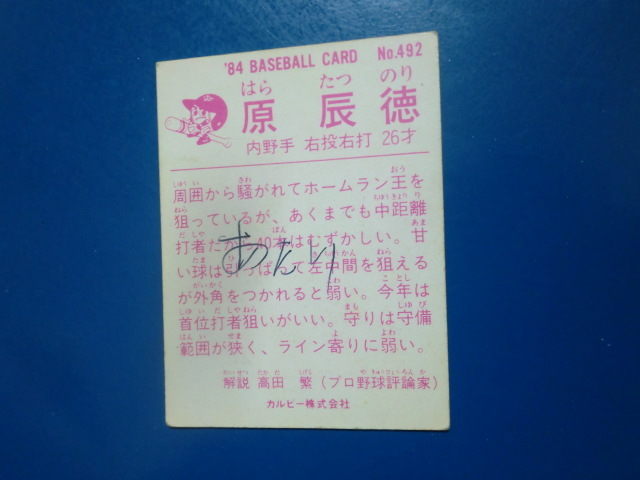 '84 BASEBALL CARD No.492
はら たつ のり
原 辰 徳
内野手 右投右打 26才
周囲から騒がれてホームラン王を
狙っているが、あくまでも中距離
打者だから40本はむずかしい。甘
い球は引っぱって左中間を狙える
が外角をつかれると弱い。今年は
首位打者狙いがいい。守りは守備
範囲が狭く、ライン寄りに弱い。
解説 高田 繁(プロ野球評論家)
カルビー株式会社
あたり